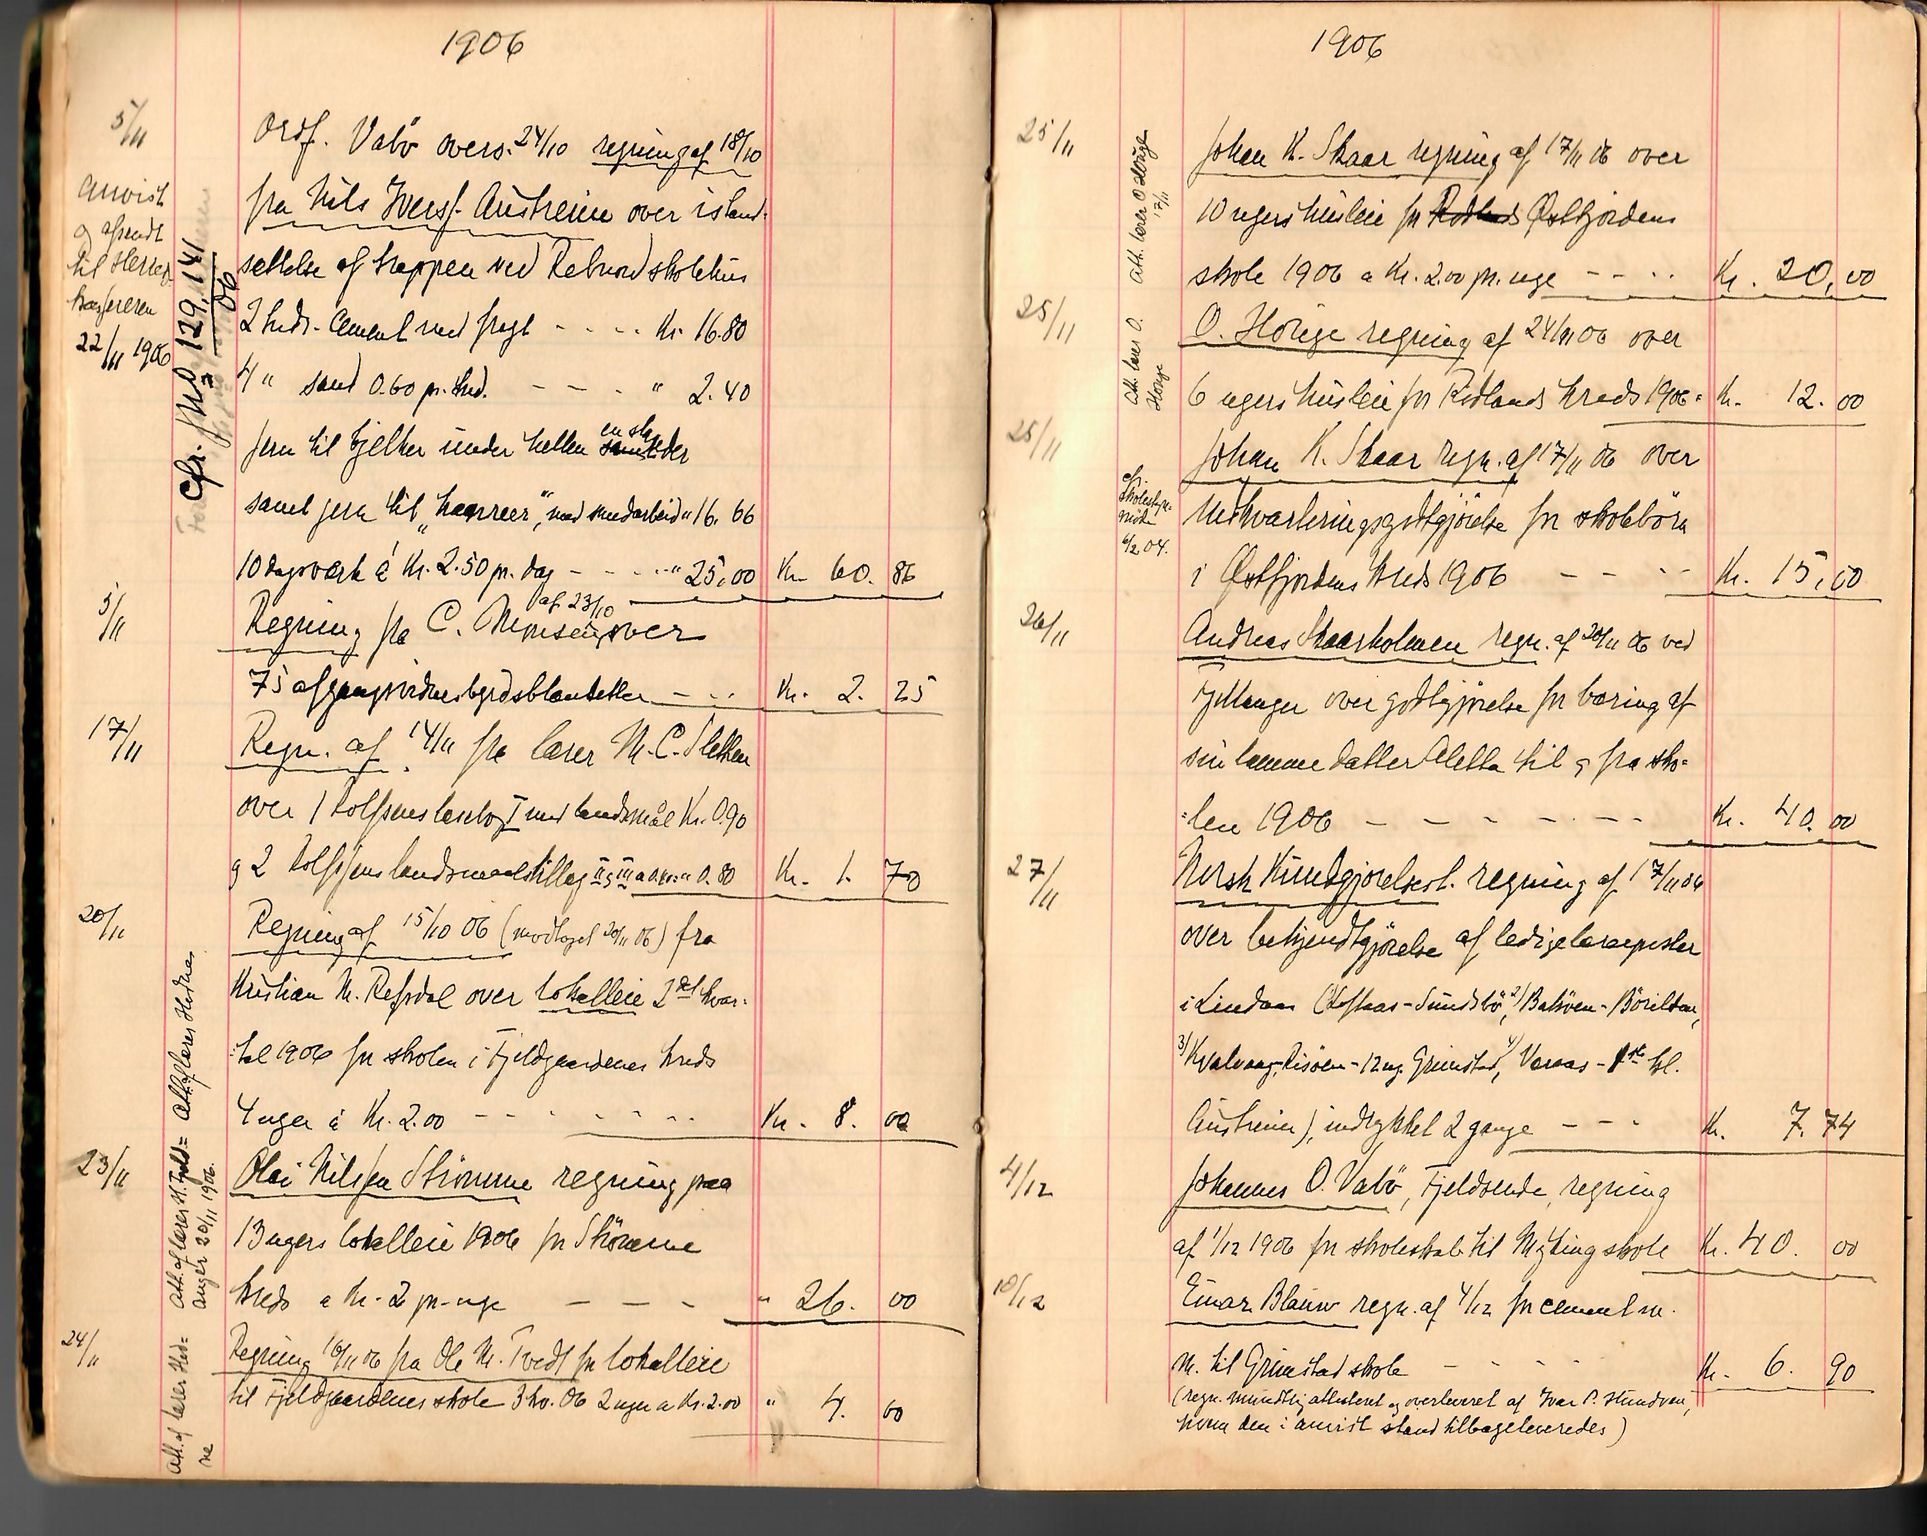 1906
5/11
Ordf. Vabö overs. 24/10 regning af 18/10
Anvist
og afsendt
til Herreds
kasereren
22/11 1906
fra Nils Iversf. Austreim over istand-
settelse af trappen ved Rebnord skolehus
2 hds. Cement med fragt - - - - Kr. 16.80
4 " sand 0.60 pr. hd. - - - " 2.40
jern til bjelker under hellen en sk
samt jern til "kanreer", med smedarbeid " 16.66
10 dagsverk á Kr. 2.50 pr. dag - - - " 25,00 Kr. 60. 86
Cfr. 129, 141
06
5/11
Regning fra C. Monsen af 23/10 over
75 afgangsvidnesbyrdsblanketter - - - Kr. 2. 25
17/11
Regn. af 14/11 fra lærer M. C. Sletten
over 1 Rolfsens læsebog I med landsmål Kr. 0.90
og 2 Rolfsens landsmaalstillæg II og III a 0.40 " 0.80 Kr. 1. 70
20/11
Regning af 15/10 06 (modtaget 20/11 06) fra
Kristian M. Refsdal over lokalleie 2det kvar-
tal 1906 for skolen i Fjeldgaardenes kreds
4 uger á Kr. 2.00 - - - - - - Kr. 8. 00
Att. af lærer Hodnes
23/11
Olai Nilsen Strömme regning paa
13 ugers lokalleie 1906 for Strömme
kreds a Kr. 2 pr. uge - - - " 26. 00
Att. af lærer H. Fjeld=
anger 20/11 1906.
24/11
Regning 16/11 06 fra Ole M. Tvedt for lokalleie
til Fjeldgaardenes skole 3 kv. 06 2 uger a Kr. 2.00 " 4. 00
Att. af lærer Hod=
ne
1906
25/11
Johan K. Skaar regning af 17/11 06 over
10 ugers husleie for Østfjordens
skole 1906 a Kr. 2.00 pr. uge - - - - Kr. 20,00
Att. lærer O Hauge
17/11
25/11
O. Hauge regning af 24/11 06 over
6 ugers husleie for Risland kreds 1906 = Kr. 12. 00
Att. lærer O.
Hauge
25/11
Johan K. Skaar regn. af 17/11 06 over
Indkvarteringsgodtgjörelse for skolebörn
i Østfjordens kreds 1906 - - - - Kr. 15,00
cfr.
Skolestyre-
möde
6/2 04.
26/11
Andreas Skaarholmen regn. af 20/11 06 ved
Fjellanger over godtgjörelse for bæring af
sin lamme datter Aletta til og fra sko=
=len 1906 - - - - - - - Kr. 40. 00
27/11
Norsk Kundgjörelsest. regning af 17/11 06
over bekjendtgjörelse af ledige læreposter
i Lindaas (Kolstaas - Sundsbö, 2) Baköen - Böreilden,
3) Kvalvaag, Risöen - 12 ug. Grimstad, 4) Varaas - 1ste kl.
Austreim), indrykket 2 gange - - - Kr. 7. 74
4/12
Johannes O. Vabö, Fjeldsende, regning
af 1/12 1906 for skoleskab til Myking skole Kr. 40. 00
10/12
Einar Blauw regn. af 4/12 for cement m.
m. til Grimstad skole - - - - Kr. 6. 90
(regn. mundtlig attesteret og overleveret af Ivar P. Hundven,
hvem den i anvist stand tilbageleveredes)